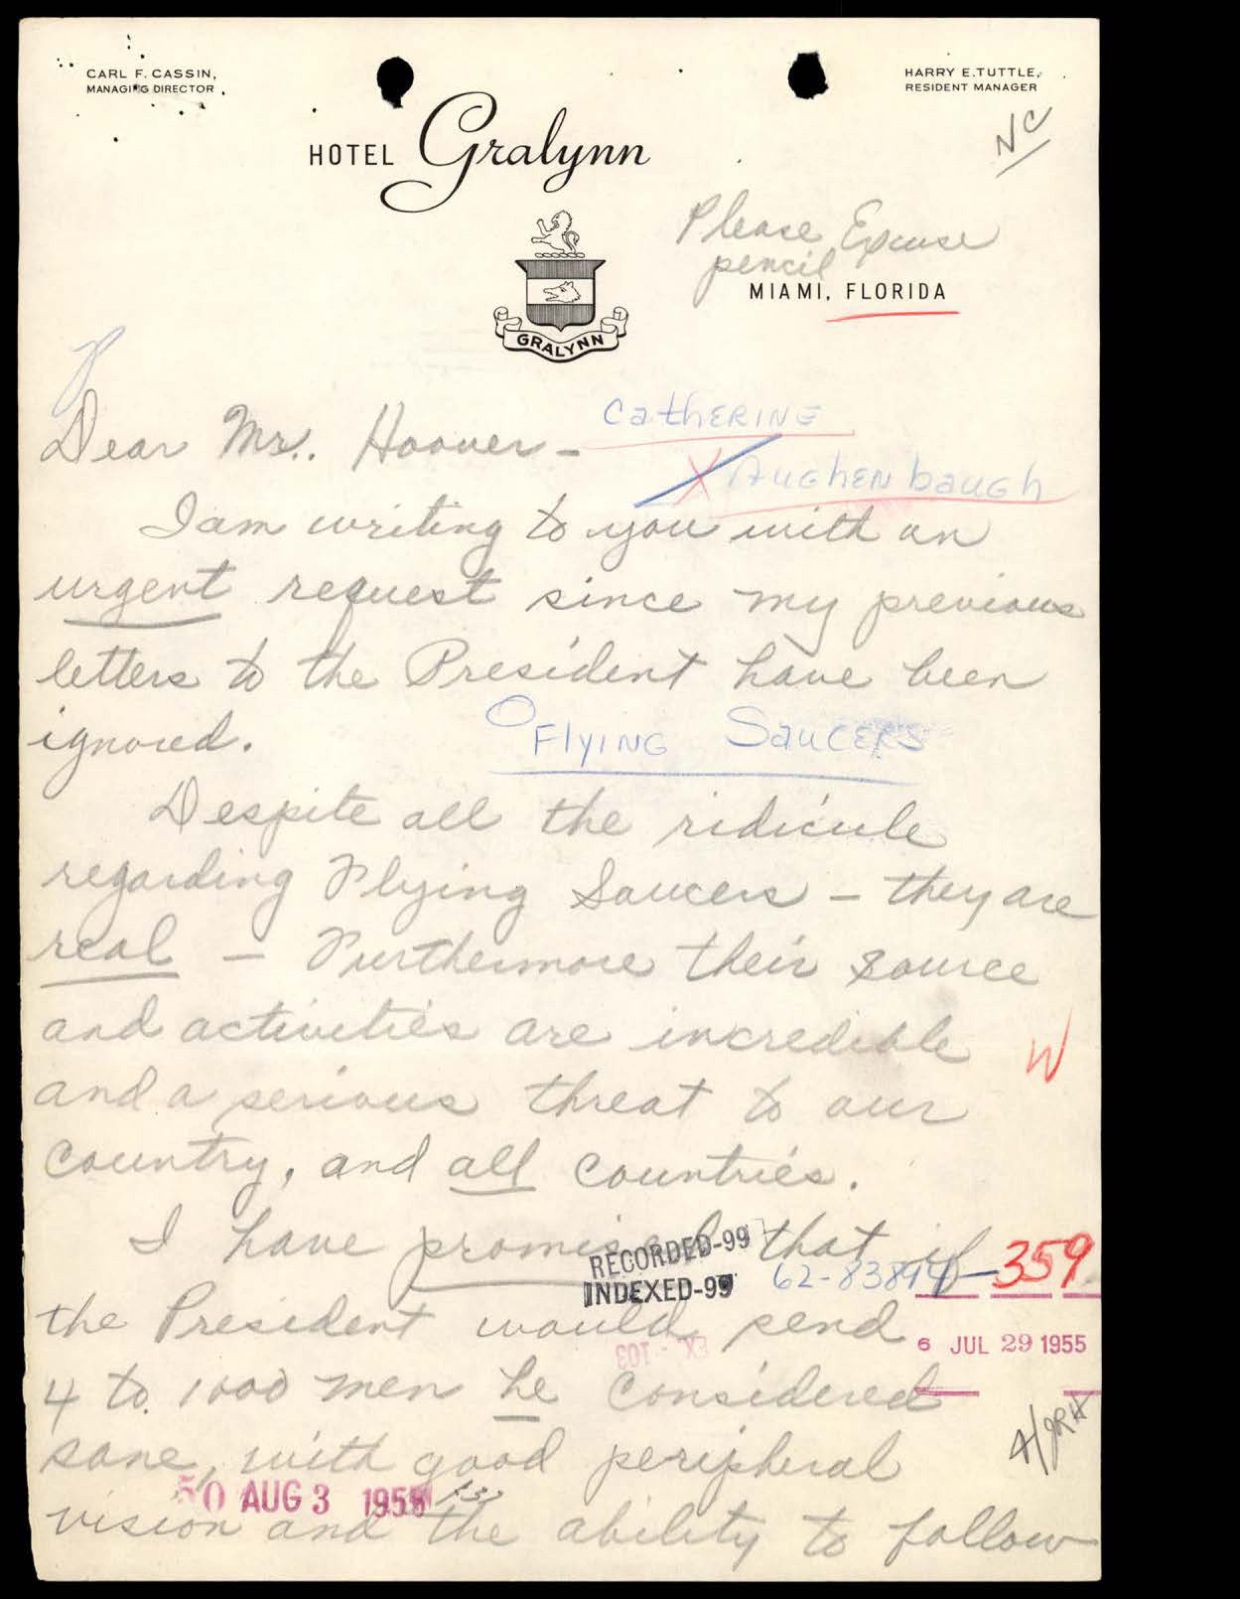 CARL F. CASSIN,
MANAGING DIRECTOR
HARRY E. TUTTLE,
RESIDENT MANAGER
NC
HOTEL Gralynn
Please Excuse
pencil
MIAMI, FLORIDA
GRALYNN
Dear Mr. Hoover –
Catherine
Aughenbaugh
I am writing to you with an
urgent request since my previous
letters to the President have been
ignored.
Flying Saucers
Despite all the ridicule
regarding Flying Saucers – they are
real – Furthermore their source
and activities are incredible
W
and a serious threat to our
country, and all countries.
I have promised that if
RECORDED-99
INDEXED-99
62-83894-359
the President would send
6 JUL 29 1955
EX-103
4 to 1000 men he considered
sane, with good peripheral
50 AUG 3 1955
vision and the ability to follow